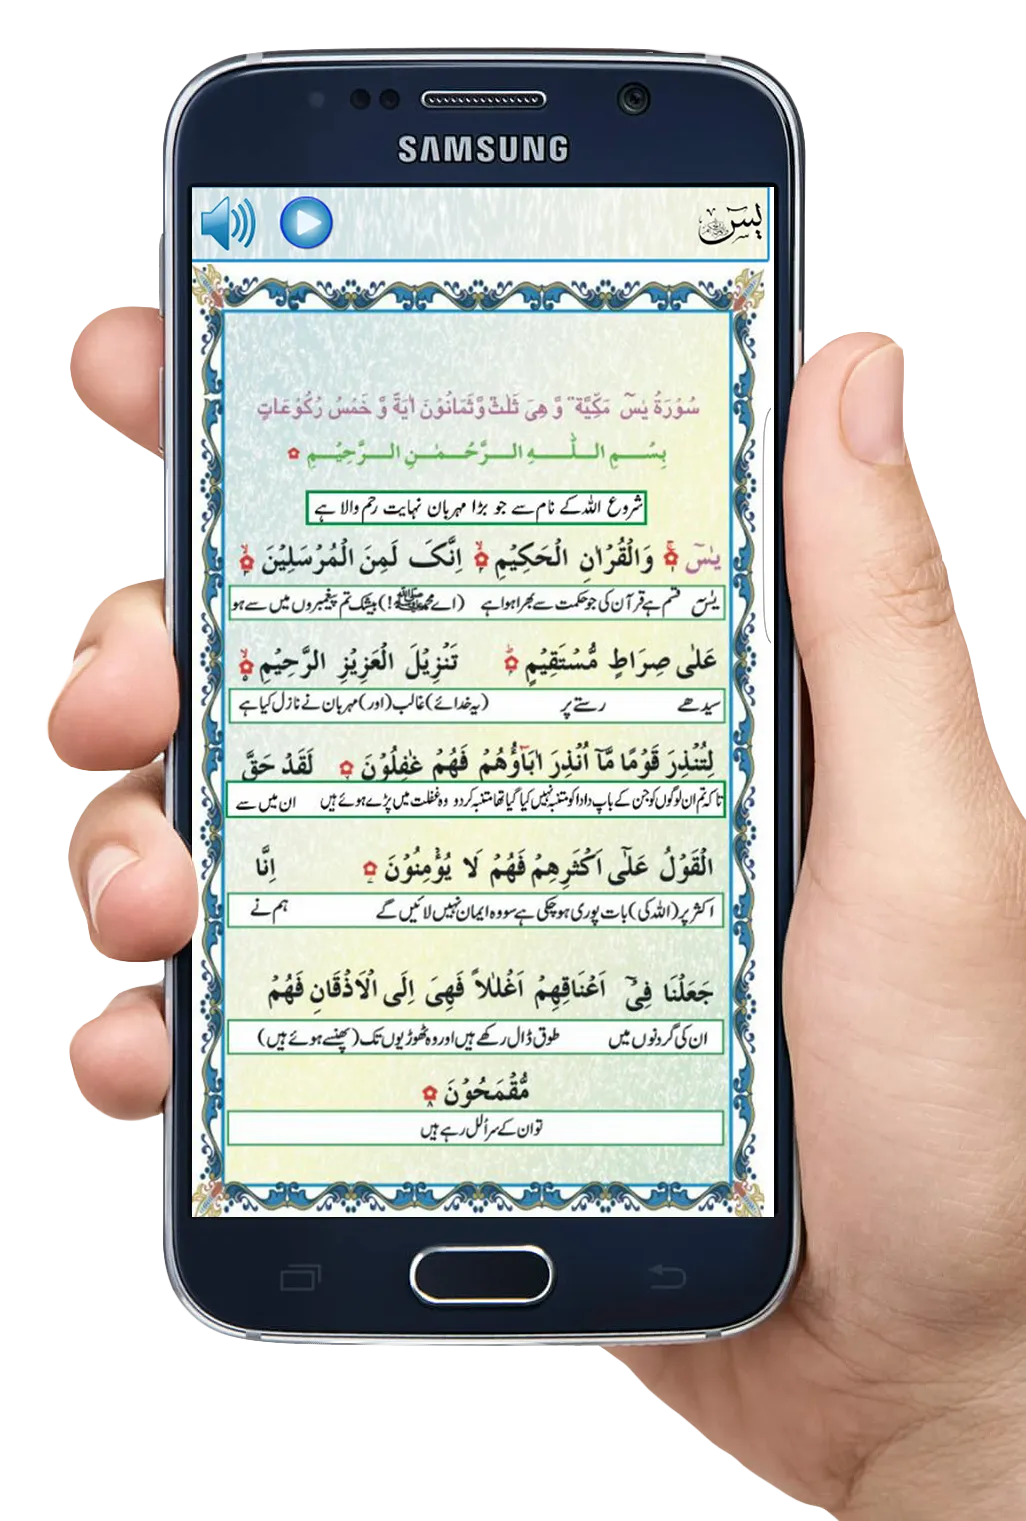 SAMSUNG
یٰسٓ
سُوْرَةُ یٰسٓ مَكِّیَّةٌ وَّ هِیَ ثَلٰثٌ وَّثَمَانُوْنَ اٰیَةً وَّ خَمْسُ رُكُوْعَاتٍ
بِسْمِ اللّٰهِ الرَّحْمٰنِ الرَّحِیْمِ
شروع اللہ کے نام سے جو بڑا مہربان نہایت رحم والا ہے
یٰسٓ وَالْقُرْاٰنِ الْحَكِیْمِ اِنَّكَ لَمِنَ الْمُرْسَلِیْنَ
یٰسٓ قسم ہے قرآن کی جو حکمت سے بھرا ہوا ہے (اے محمدﷺ!) بیشک تم پیغمبروں میں سے ہو
عَلٰی صِرَاطٍ مُّسْتَقِیْمٍ تَنْزِیْلَ الْعَزِیْزِ الرَّحِیْمِ
سیدھے رستے پر (یہ خدائے) غالب (اور) مہربان نے نازل کیا ہے
لِتُنْذِرَ قَوْمًا مَّاۤ اُنْذِرَ اٰبَآؤُهُمْ فَهُمْ غٰفِلُوْنَ لَقَدْ حَقَّ
تاکہ تم ان لوگوں کو جن کے باپ دادا کو متنبہ نہیں کیا گیا تھا متنبہ کردو وہ غفلت میں پڑے ہوئے ہیں ان میں سے
الْقَوْلُ عَلٰۤی اَكْثَرِهِمْ فَهُمْ لَا یُؤْمِنُوْنَ اِنَّا
اکثر پر (اللہ کی) بات پوری ہوچکی ہے سو وہ ایمان نہیں لائیں گے ہم نے
جَعَلْنَا فِیْۤ اَعْنَاقِهِمْ اَغْلٰلًا فَهِیَ اِلَی الْاَذْقَانِ فَهُمْ
ان کی گردنوں میں طوق ڈال رکھے ہیں اور وہ ٹھوڑیوں تک (پھنسے ہوئے ہیں)
مُّقْمَحُوْنَ
تو ان کے سر اُلل رہے ہیں